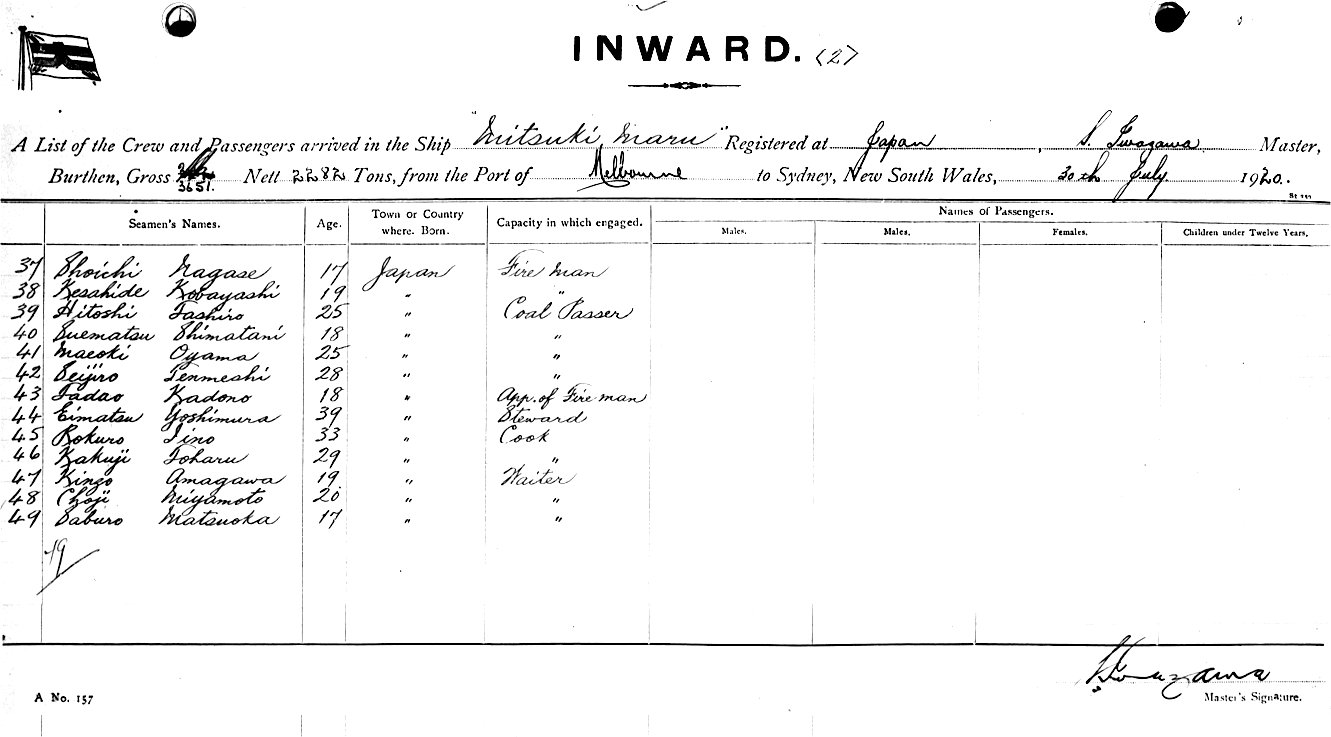 INWARD. <2>
A List of the Crew and Passengers arrived in the Ship "Mitsuki Maru" Registered at Japan, S. Iwazawa Master,
Burthen, Gross 3651. Nett 2282 Tons, from the Port of Melbourne to Sydney, New South Wales, 30th July 1920.
Seamen's Names. Age. Town or Country where. Born. Capacity in which engaged. Names of Passengers.
Males. Males. Females. Children under Twelve Years.
37 Shoichi Nagase 17 Japan Fire man
38 Kesahide Kobayashi 19 " "
39 Hitoshi Tashiro 25 " Coal Passer
40 Suematsu Shimatani 18 " "
41 Maeoki Oyama 25 " "
42 Seijiro Tenmeshi 28 " "
43 Tadao Kadono 18 " App. of Fire man
44 Eimatsu Yoshimura 39 " Steward
45 Rokuro Iino 33 " Cook
46 Kakuji Toharu 29 " "
47 Kingo Amagawa 19 " Waiter
48 Choji Miyamoto 20 " "
49 Saburo Matsuoka 17 " "
49
S. Iwazawa
A No. 157 Master's Signature.